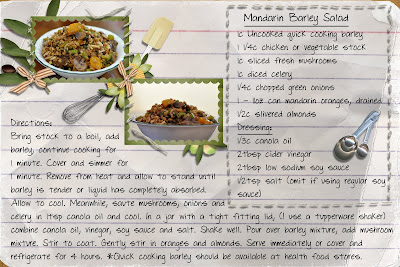 Mandarin Barley Salad
1c Uncooked quick cooking barley
1 1/4c chicken or vegetable stock
1c sliced fresh mushrooms
1c diced celery
1/4c chopped green onions
1 - 11oz can mandarin oranges, drained
1/2c slivered almonds
Dressing:
1/3c canola oil
2tbsp cider vinegar
2tbsp low sodium soy sauce
1/2tsp salt (omit if using regular soy
sauce)
Directions:
Bring stock to a boil, add
barley, continue cooking for
1 minute. Cover and simmer for
minute. Remove from heat and allow to stand until
barley is tender or liquid has completely absorbed.
Allow to cool. Meanwhile, saute mushrooms, onions and
celery in 1tsp canola oil and cool. In a jar with a tight fitting lid, (I use a tupperware shaker)
combine canola oil, vinegar, soy sauce and salt. Shake well. Pour over barley mixture, add mushroom
mixture. Stir to coat. Gently stir in oranges and almonds. Serve immediately or cover and
refrigerate for 4 hours. *Quick cooking barley should be available at health food stores.